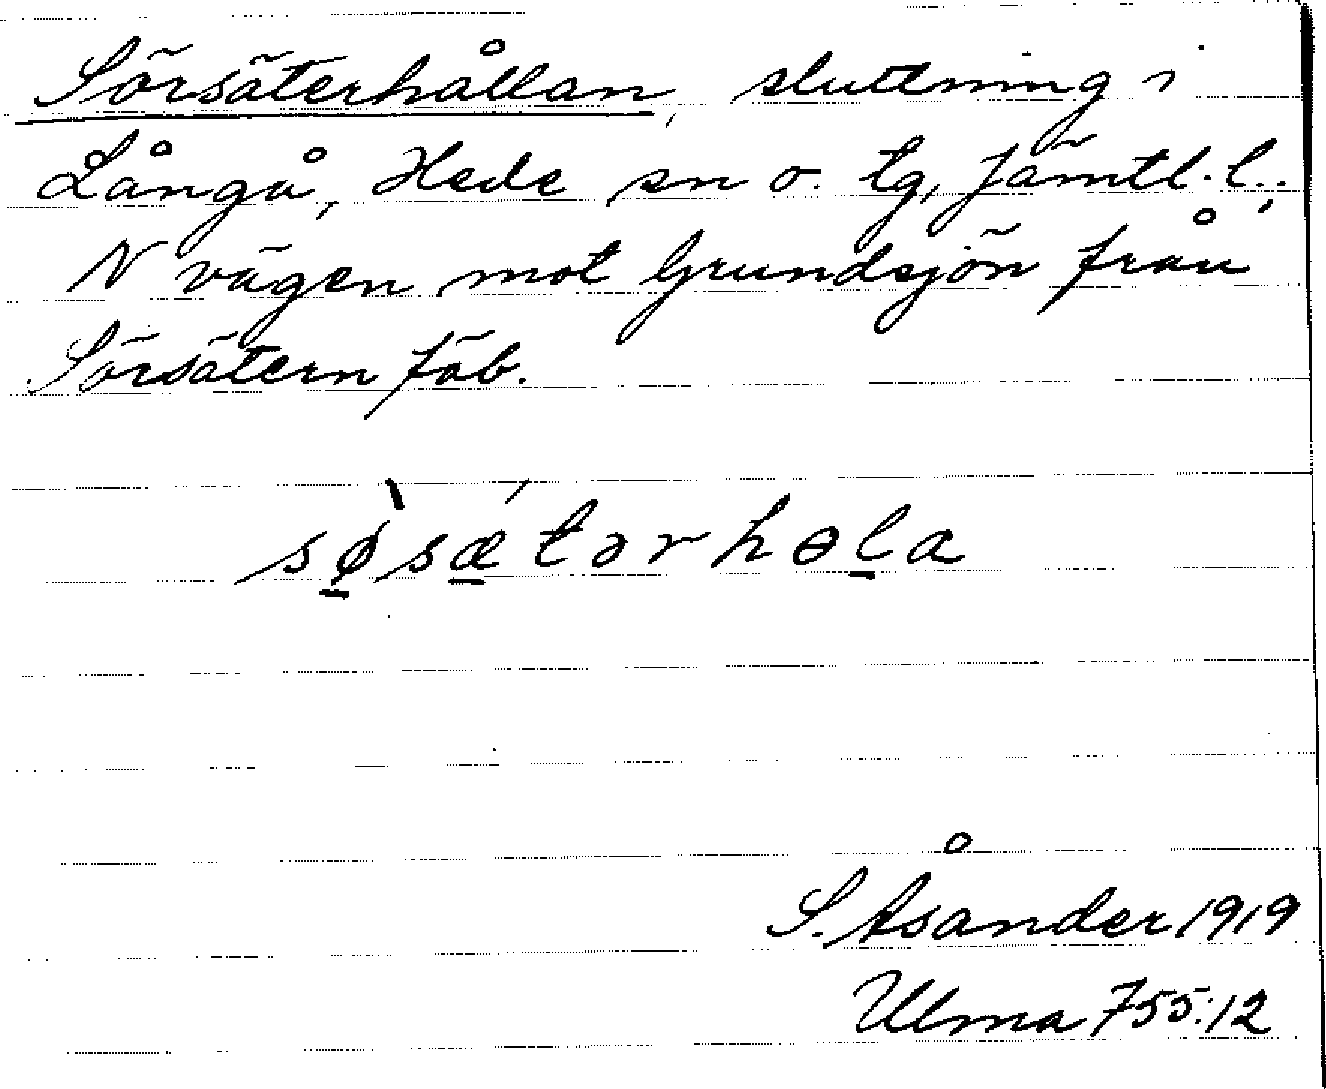 Sörsäterhållan, sluttning i
Långå, Hede sn o. tg, Jämtl. l.;
N vägen mot Grundsjön från
Sörsätern fäb.
sø̠̀sǽ̠tərhɵl̠a
S. Åsander 1919
Ulma 755:12